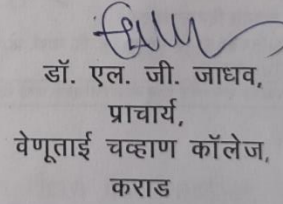 डॉ. एल. जी. जाधव,
प्राचार्य,
वेणूताई चव्हाण कॉलेज,
कराड